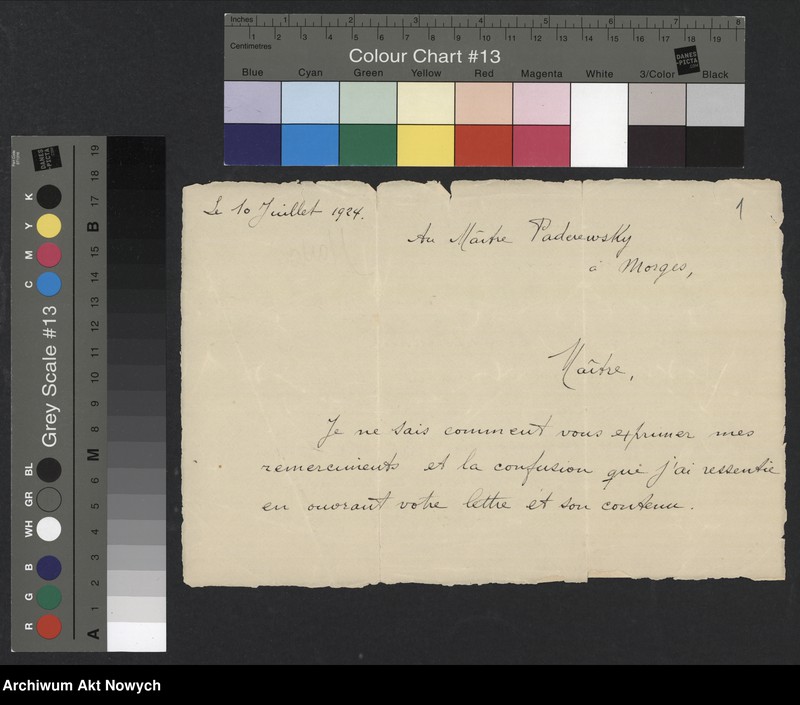 Inches 1 2 3 4 5 6 7 8
1 2 3 4 5 6 7 8 9 10 11 12 13 14 15 16 17 18 19
Centimetres
Colour Chart #13
DANES
-PICTA
Blue Cyan Green Yellow Red Magenta White 3/Color Black
Le 10 Juillet 1924.
1
Au Maître Paderewsky
à Morges,
Maître,
Je ne sais comment vous exprimer mes
remerciments et la confusion que j'ai ressentie
en ouvrant votre lettre et son contenu.
R G B WH GR BL Grey Scale #13 C M Y K
DANES
-PICTA
A 1 2 3 4 5 6 M 8 9 10 11 12 13 14 15 B 17 18 19
Archiwum Akt Nowych